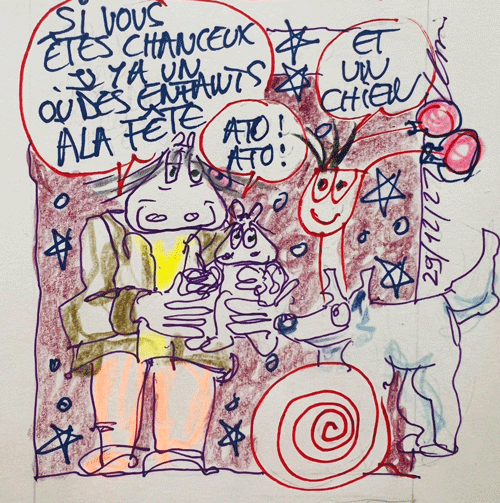 SI VOUS
ÊTES CHANCEUX
IL Y A UN
OU DES ENFANTS
A LA FÊTE
ATO!
ATO!
ET
UN
CHIEN